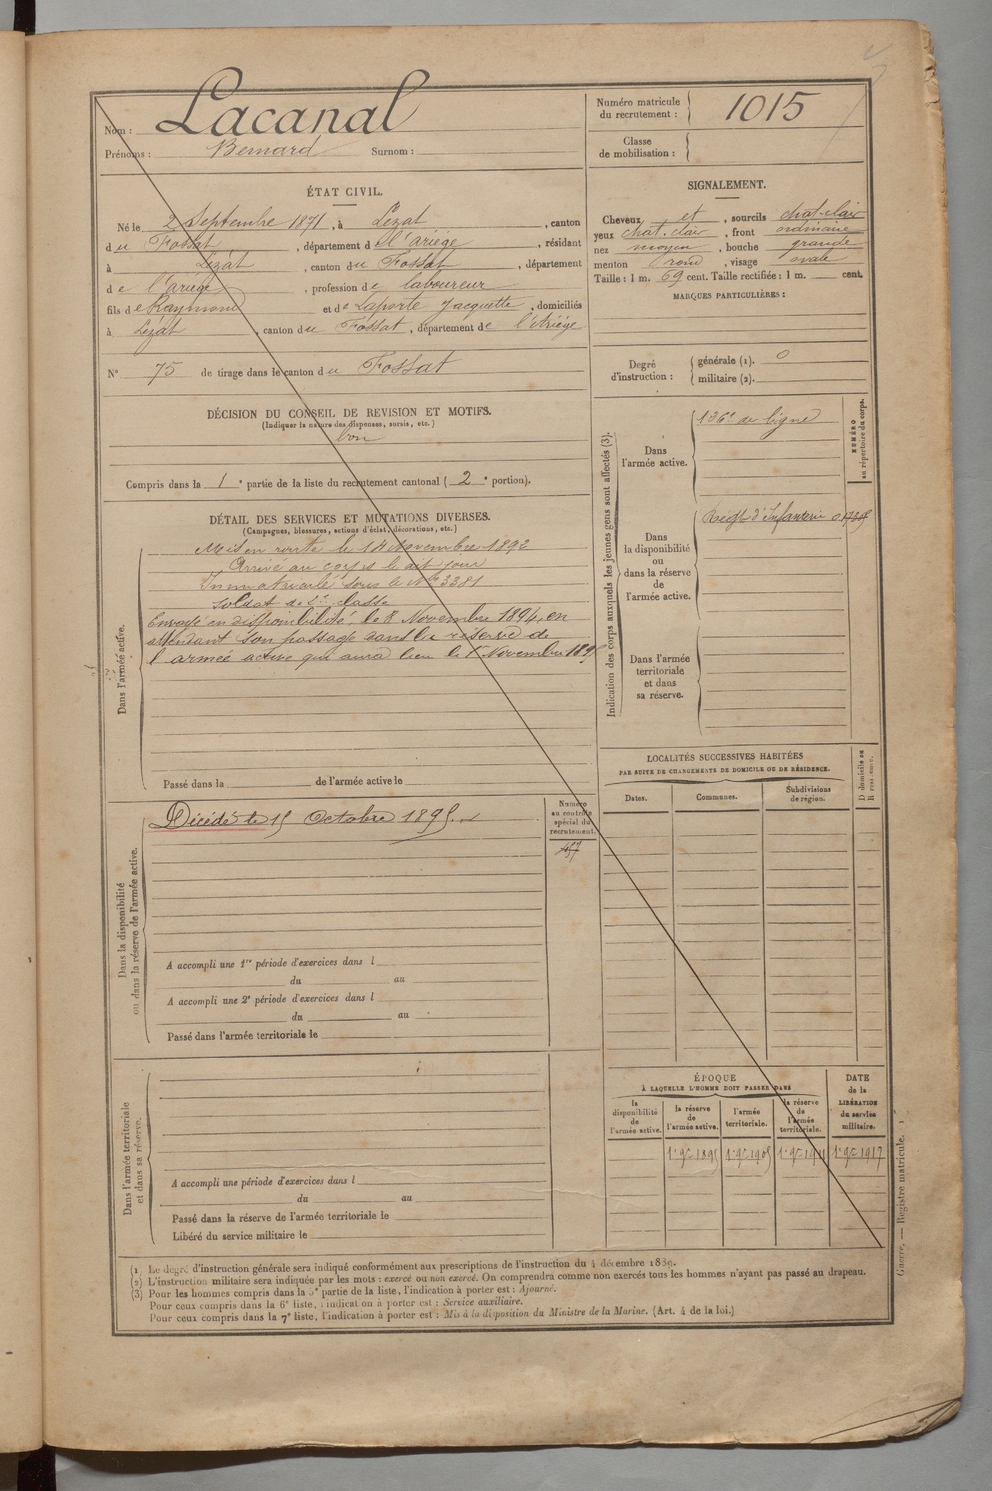 Nom : Lacanal
Prénoms : Bernard Surnom :
Numéro matricule du recrutement : 1015
Classe de mobilisation :
ÉTAT CIVIL.
Né le 2 Septembre 1871, à Lézat, canton
du Fossat, département de l'ariège, résidant
à Lézat, canton du Fossat, département
de l'ariège, profession de laboureur
fils de Raymond et de Laporte Jacquette, domiciliés
à Lézat, canton du Fossat, département de l'Ariège
N° 75 de tirage dans le canton du Fossat
SIGNALEMENT.
Cheveux et, sourcils chat-clair
yeux chat. clair, front ordinaire
nez moyen, bouche grande
menton rond, visage ovale
Taille : 1 m. 69 cent. Taille rectifiée : 1 m. cent.
MARQUES PARTICULIÈRES :
Degré d'instruction : générale (1). 0
militaire (2).
DÉCISION DU CONSEIL DE REVISION ET MOTIFS.
(Indiquer la nature des dispenses, sursis, etc.)
bon
Compris dans la 1e partie de la liste du recrutement cantonal (2e portion).
DÉTAIL DES SERVICES ET MUTATIONS DIVERSES.
(Campagnes, blessures, actions d'éclat, décorations, etc.)
Dans l'armée active.
Mis en route le 14 Novembre 1892
Arrivé au corps le dit jour
Immatriculé sous le N° 3381
soldat de 2e classe
Envoyé en disponibilité le 8 Novembre 1894, en
attendant son passage dans la réserve de
l'armée active qui aura lieu le 1er Novembre 189
Passé dans la de l'armée active le
Indication des corps auxquels les jeunes gens sont affectés (3).
NUMÉRO au répertoire du corps.
Dans l'armée active.
136e de ligne
Dans la disponibilité ou dans la réserve de l'armée active.
Régt d'Infanterie
Dans l'armée territoriale et dans sa réserve.
Dans la disponibilité ou dans la réserve de l'armée active.
Décédé le 15 Octobre 1895.
Numéro au contrôle spécial du recrutement.
457
A accompli une 1re période d'exercices dans l
du au
A accompli une 2e période d'exercices dans l
du au
Passé dans l'armée territoriale le
LOCALITÉS SUCCESSIVES HABITÉES
PAR SUITE DE CHANGEMENTS DE DOMICILE OU DE RÉSIDENCE.
Dates. Communes. Subdivisions de région. D domicile ou R résidence.
Dans l'armée territoriale et dans sa réserve.
A accompli une période d'exercices dans l
du au
Passé dans la réserve de l'armée territoriale le
Libéré du service militaire le
ÉPOQUE
À LAQUELLE L'HOMME DOIT PASSER DANS
la disponibilité de l'armée active.
la réserve de l'armée active.
l'armée territoriale.
la réserve de l'armée territoriale.
DATE de la LIBÉRATION du service militaire.
1er 9e 1895 1er 9e 1905 1er 9e 1911 1er 9e 1917
(1) Le degré d'instruction générale sera indiqué conformément aux prescriptions de l'instruction du 4 décembre 1889.
(2) L'instruction militaire sera indiquée par les mots : exercé ou non exercé. On comprendra comme non exercés tous les hommes n'ayant pas passé au drapeau.
(3) Pour les hommes compris dans la 5e partie de la liste, l'indication à porter est : Ajourné.
Pour ceux compris dans la 6e liste, l'indication à porter est : Service auxiliaire.
Pour ceux compris dans la 7e liste, l'indication à porter est : Mis à la disposition du Ministre de la Marine. (Art. 4 de la loi.)
Guerre. — Registre matricule.